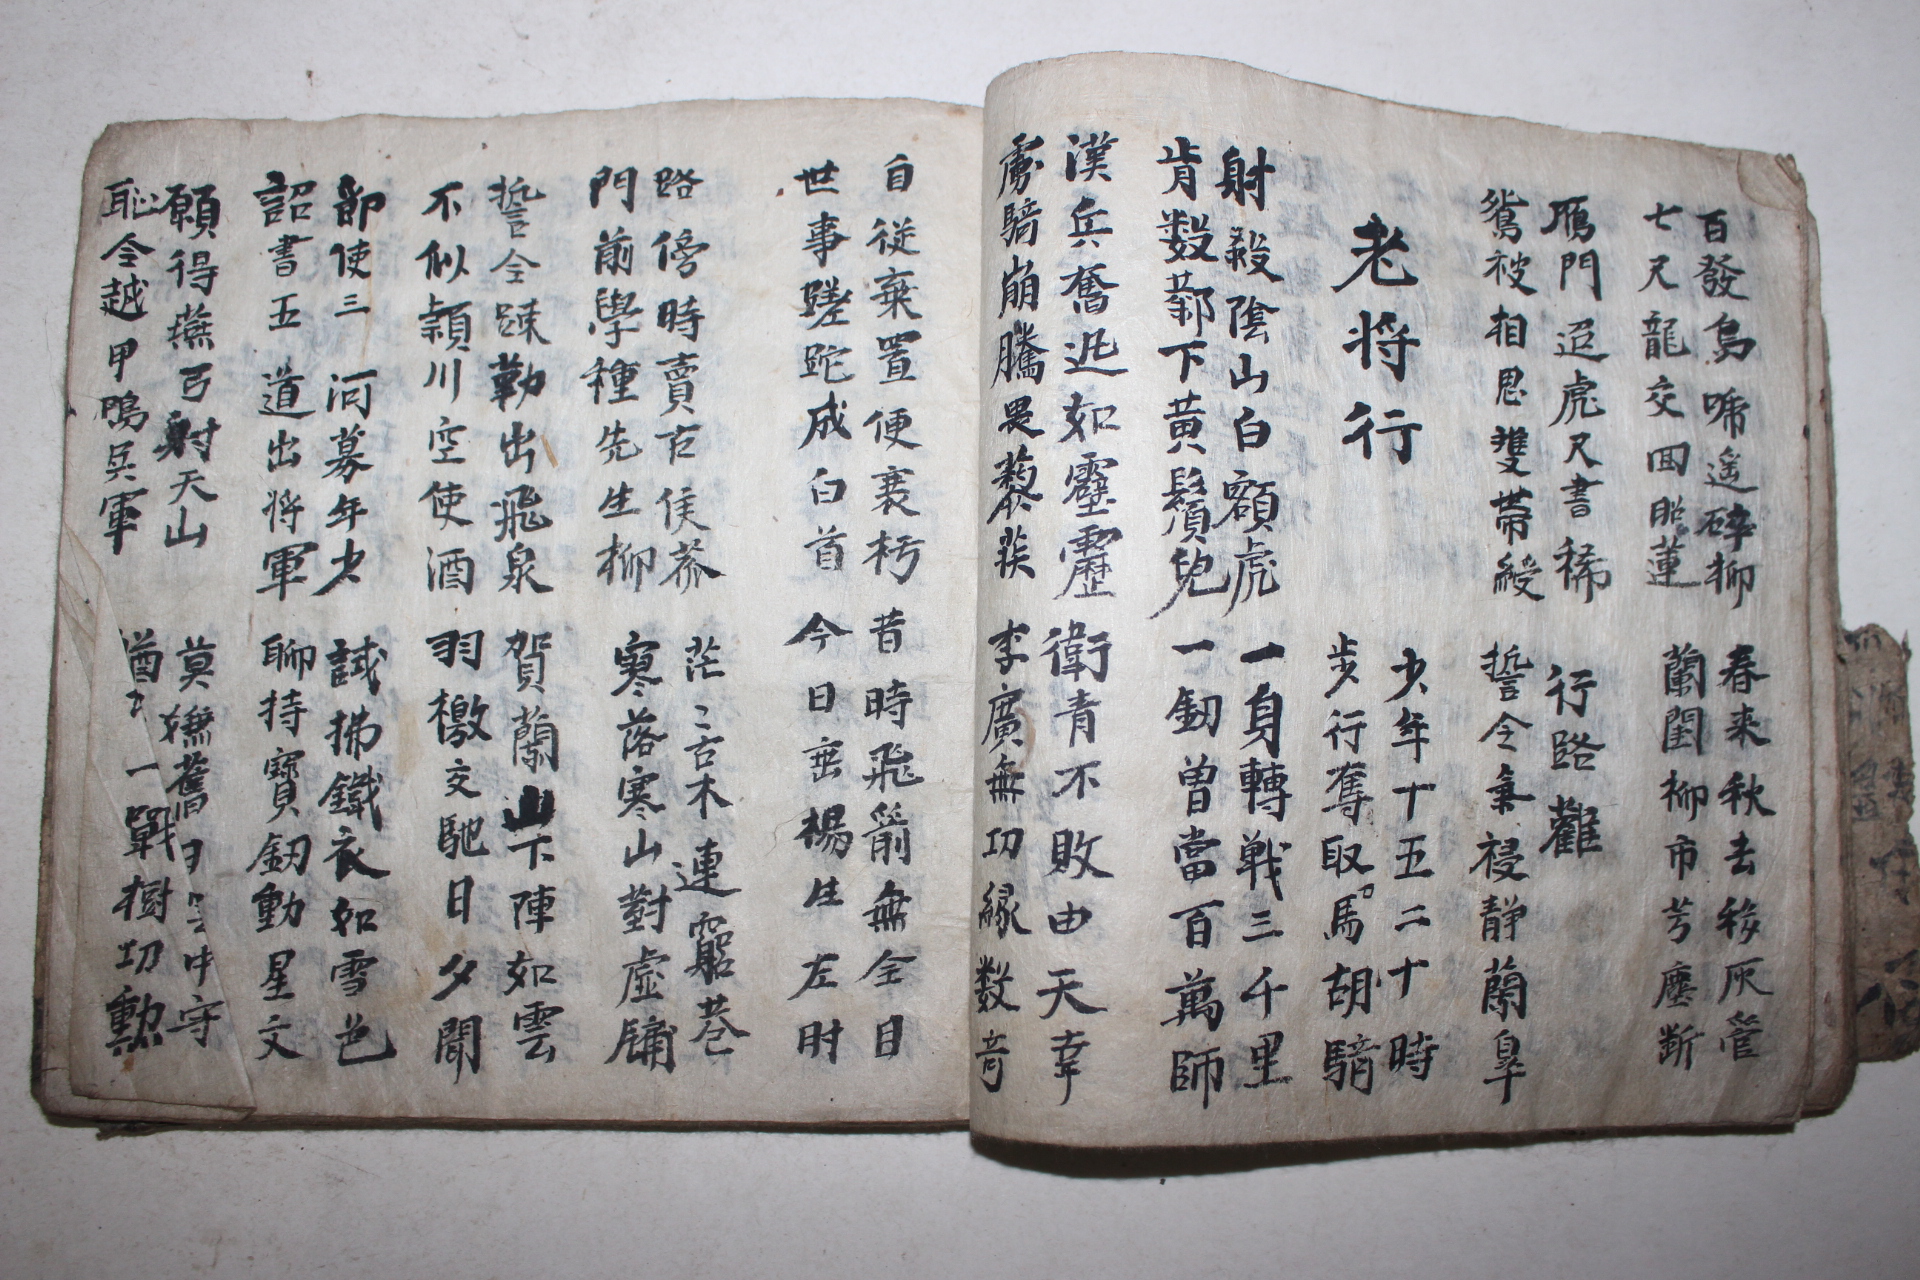 百發烏啼遙碎柳 春来秋去移灰管
七尺龍交囬照蓮 蘭閨柳市芳塵断
雁門迢虎尺書稀 行路難
鴛被相思雙帶緩 誓令氣祲靜蘭皐
老将行
少年十五二十時
步行奪取馬胡騎
射殺陰山白額虎 一身轉戦三千里
肯数鄴下黄鬚兒 一釼曽當百萬師
漢兵奮迅如霹靂 衛青不敗由天幸
虜騎崩騰畏蔾蒺 李廣無功緣数奇
自從棄置便衰朽 昔時飛箭無全目
世事蹉跎成白首 今日垂楊生左肘
路傍時賣古侯 茫〻古木連窮巷
門前學種先生柳 寥落寒山對虛牗
誓令踈勒出飛泉 賀蘭山下陣如雲
不似潁川空使酒 羽檄交馳日夕聞
節使三河募年少 試拂鐵衣如雪色
詔書五道出将軍 聊持寶釼動星文
願得燕弓射天山 莫嫌舊日 中守
恥令越甲鳴兵軍 一戰樹功勲